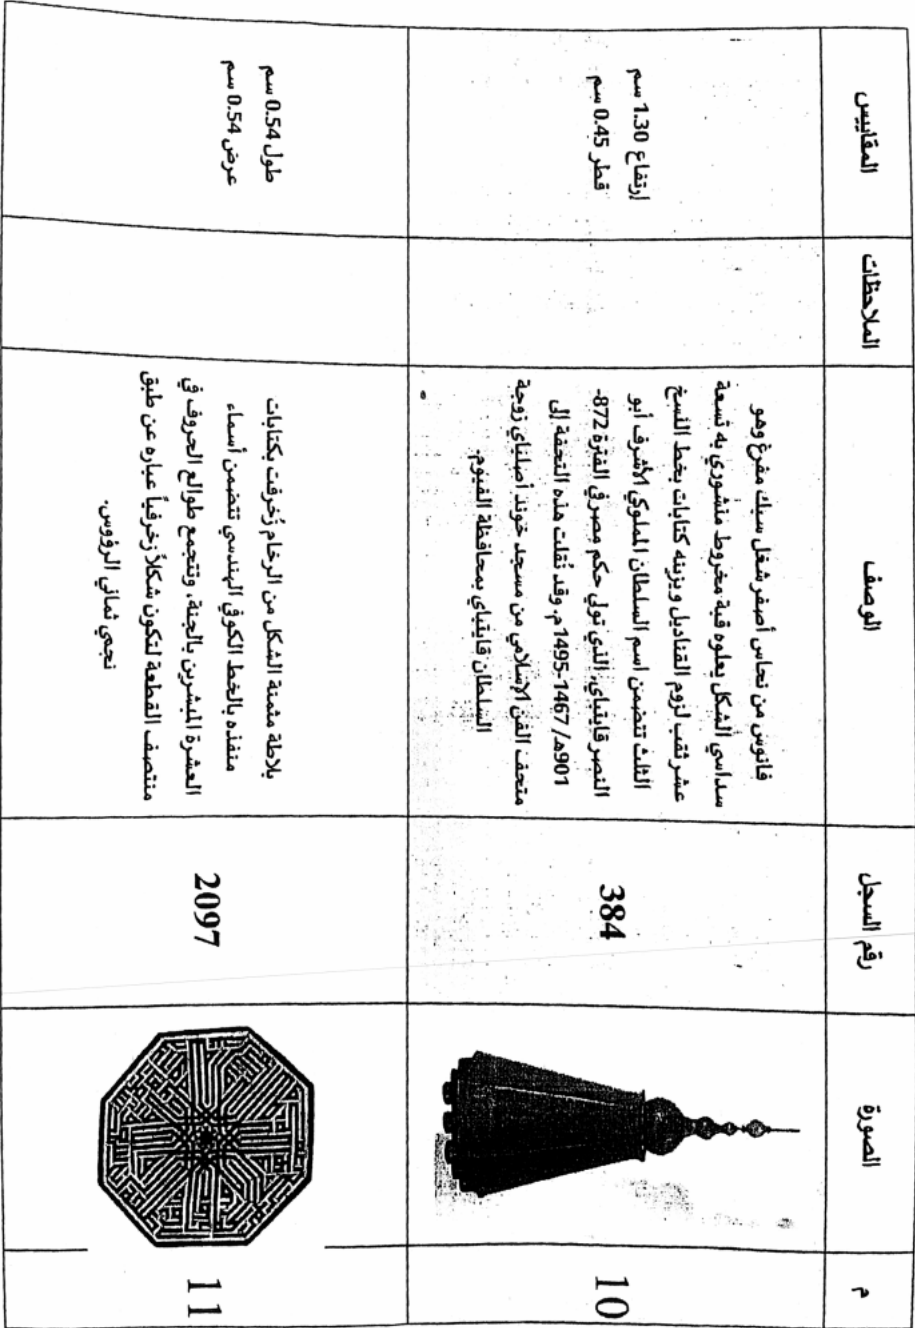 م
الصورة
رقم السجل
الوصف
الملاحظات
المقاييس
10
384
فانوس من نحاس أصفر شغل سبك مفرغ وهو
سداسي الشكل يعلوه قبة مخروط منشوري به تسعة
عشر ثقب لزوم القناديل ويزينه كتابات بخط النسخ
الثلث تتضمن اسم السلطان المملوكي الأشرف أبو
النصر قايتباي، الذي تولي حكم مصر في الفترة 872-
901هـ/ 1467-1495 م. وقد نُقلت هذه التحفة إلى
متحف الفن الإسلامي من مسجد خوند أصلباي زوجة
السلطان قايتباي بمحافظة الفيوم.
ارتفاع 1.30 سم
قطر 0.45 سم
11
2097
بلاطة مثمنة الشكل من الرخام زُخرفت بكتابات
منفذه بالخط الكوفي الهندسي تتضمن أسماء
العشرة المبشرين بالجنة، وتتجمع طوالع الحروف في
منتصف القطعة لتكون شكلاً زخرفياً عباره عن طبق
نجمي ثماني الرؤوس.
طول 0.54 سم
عرض 0.54 سم